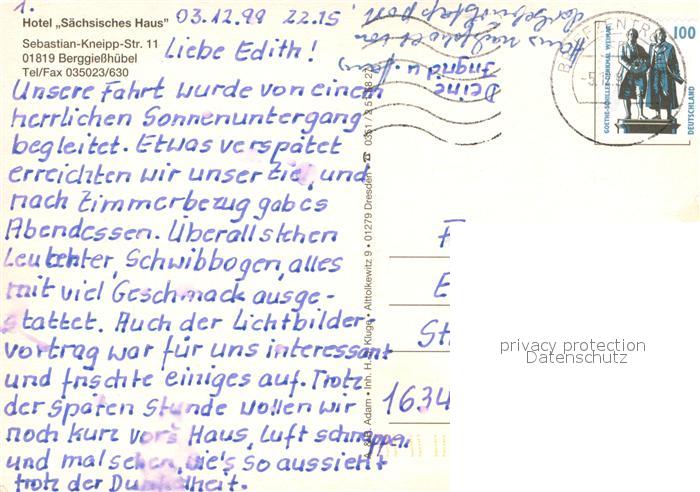 1.
Hotel „Sächsisches Haus"
Sebastian-Kneipp-Str. 11
01819 Berggießhübel
Tel/Fax 035023/630
03.12.99 22.15
Liebe Edith!
Unsere Fahrt wurde von einem
herrlichen Sonnenuntergang
begleitet. Etwas verspätet
erreichten wir unser Ziel, und
nach Zimmerbezug gab es
Abendessen. Überall stehen
Leuchter, Schwibbogen, alles
mit viel Geschmack ausge-
stattet. Auch der Lichtbilder-
vortrag war für uns interessant
und frischte einiges auf. Trotz
der späten Stunde wollen wir
noch kurz vor's Haus, Luft schnappen
und mal sehen, wie's so aussieht
trotz der Dunkelheit.
Deine
Ingrid u.
A. & R. Adam • Inh. H. u. J. Kluge • Alttolkewitz 9 • 01279 Dresden • ☎ 0351 / 2 51 58 2
BRIEFZENTRUM
100
DEUTSCHLAND
GOETHE-SCHILLER-DENKMAL WEIMAR
F
E
St
1634
privacy protection
Datenschutz